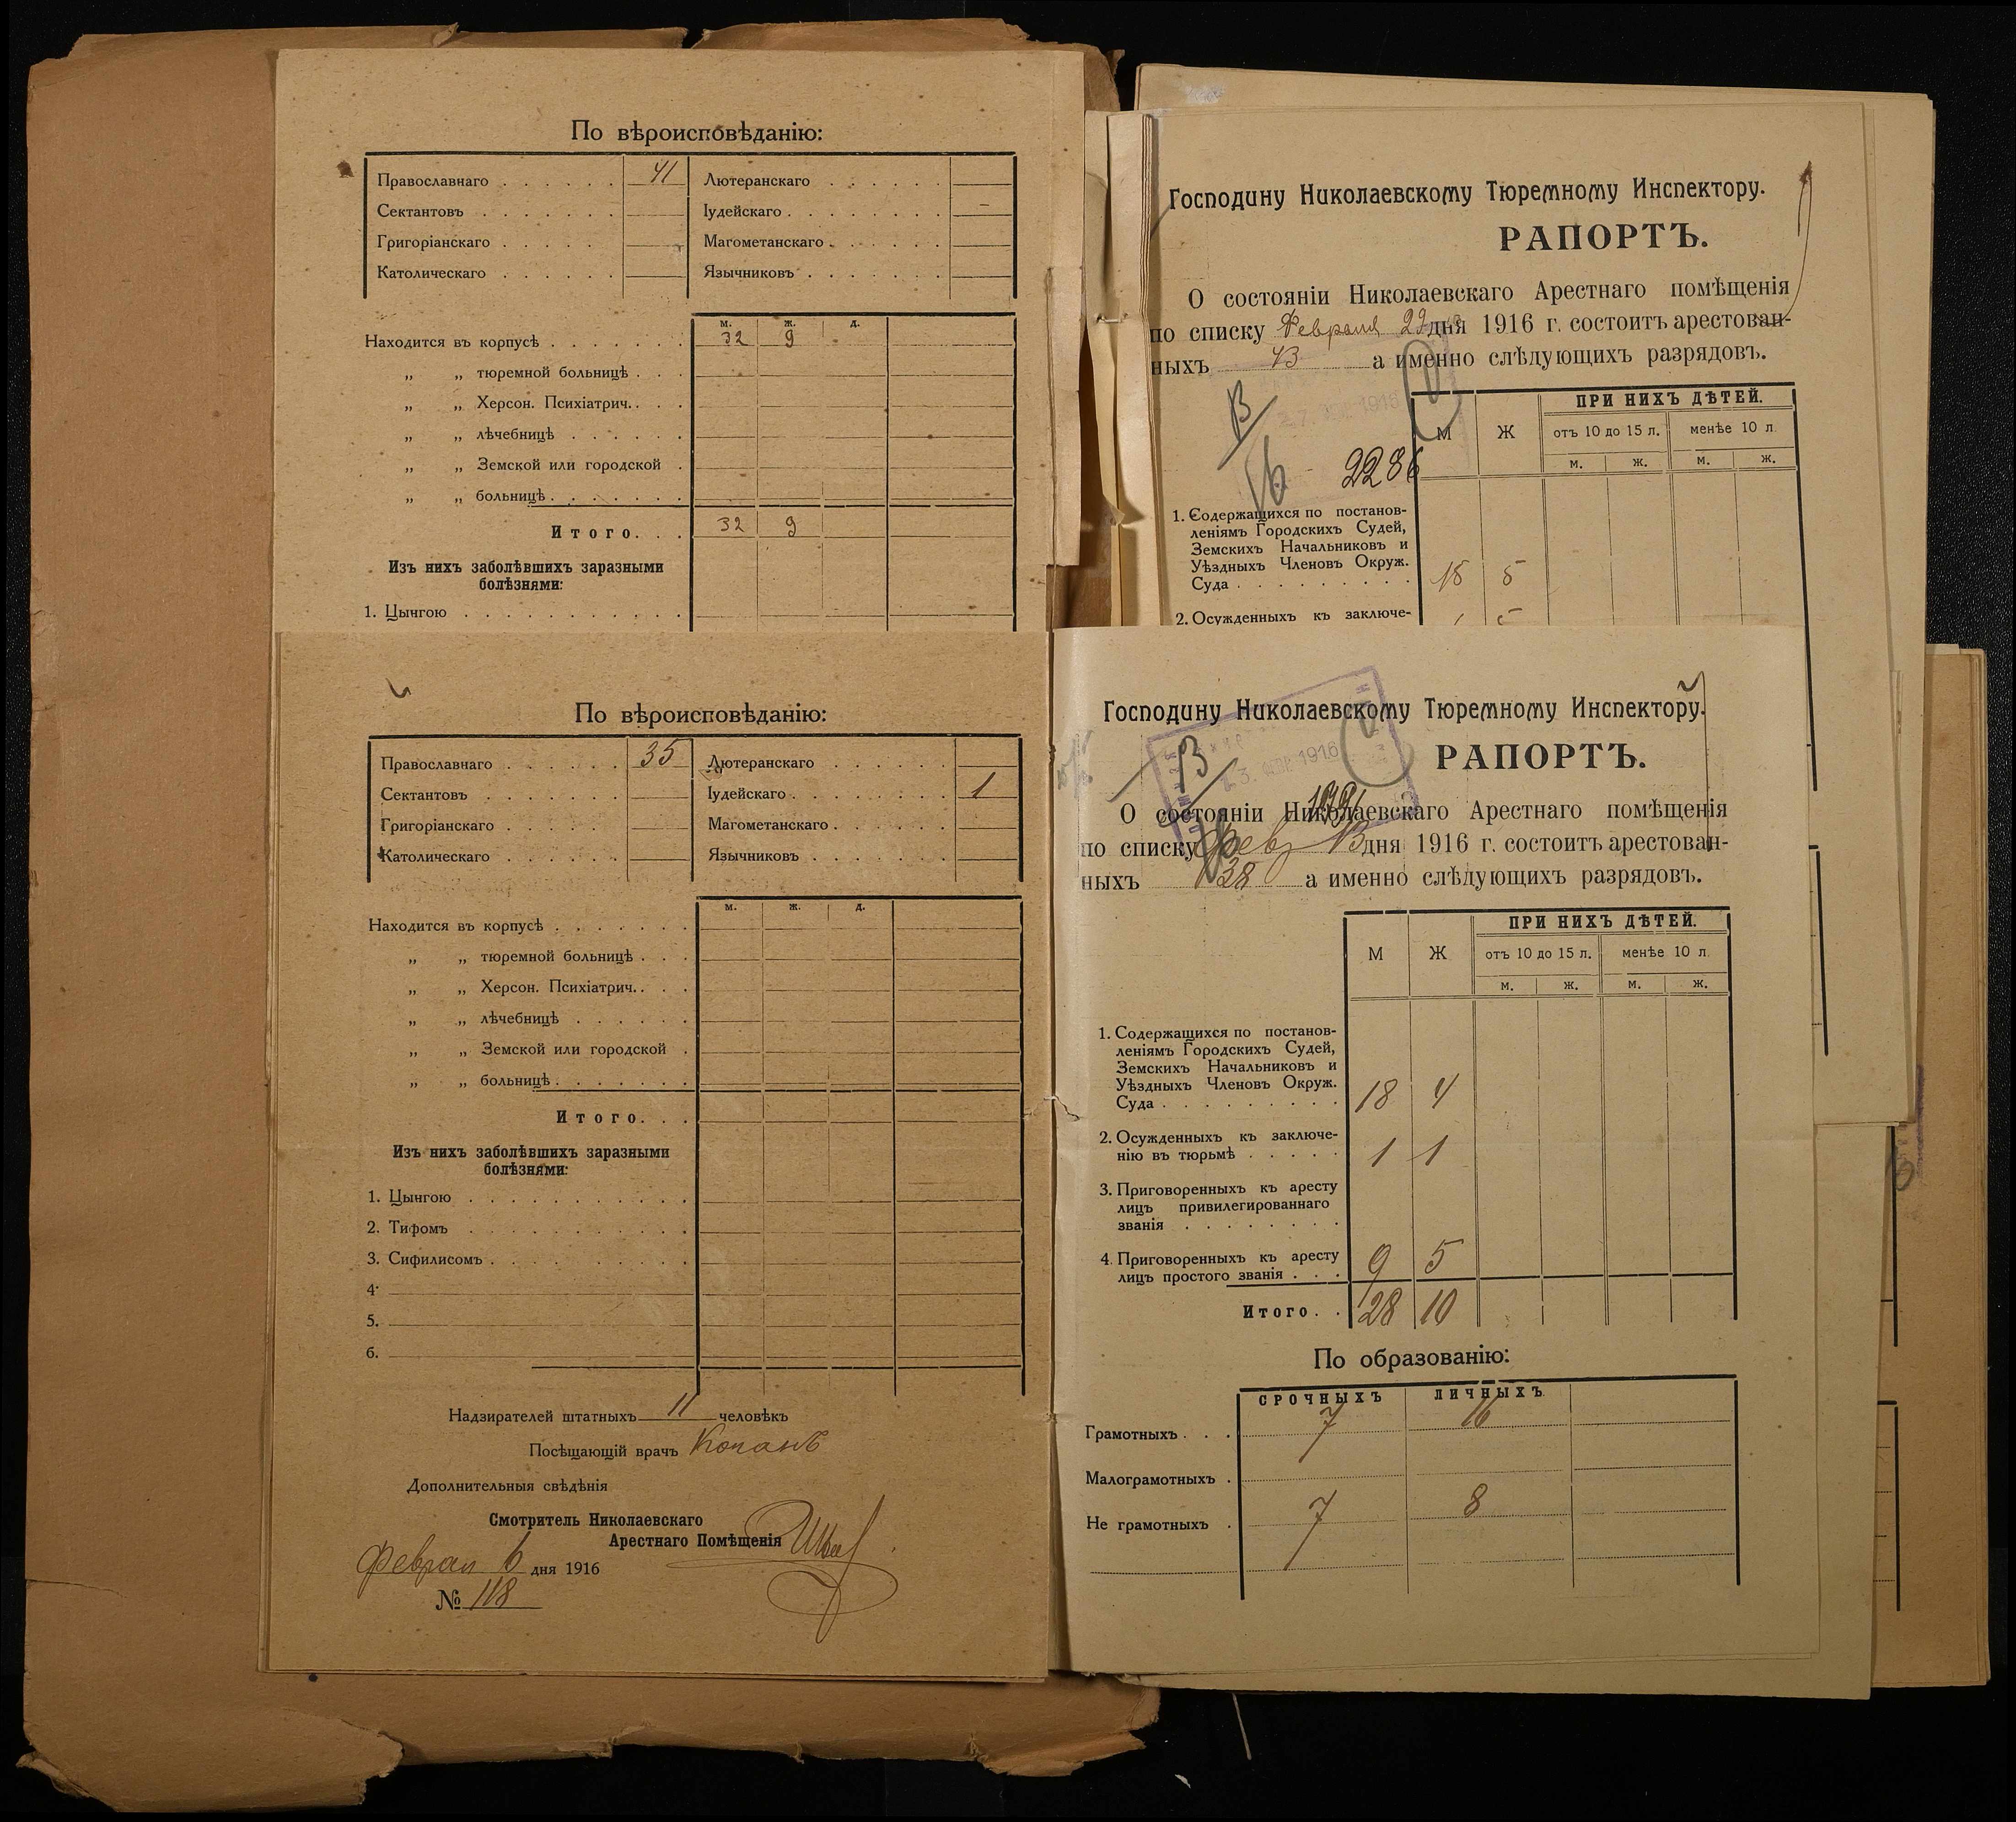 По вѣроисповѣданію:
Православнаго . . . . . . 41 Лютеранскаго . . . . . .
Сектантовъ . . . . . . . Іудейскаго . . . . . . . . –
Григоріанскаго . . . . . Магометанскаго . . . . . .
Католическаго . . . . . . Язычниковъ . . . . . . .
м. ж. д.
Находится въ корпусѣ . . . . . . . 32 9
„ „ тюремной больницѣ . . .
„ „ Херсон. Психіатрич. . . .
„ „ лѣчебницѣ . . . . . .
„ „ Земской или городской .
„ „ больницѣ . . . . . . .
Итого. . . 32 9
Изъ нихъ заболѣвшихъ заразными
болѣзнями:
1. Цынгою . . . . . . . . . . .
Господину Николаевскому Тюремному Инспектору.
РАПОРТЪ.
О состояніи Николаевскаго Арестнаго помѣщенія
по списку Февраля дня 1916 г. состоитъ арестован-
ныхъ а именно слѣдующихъ разрядовъ.
М Ж ПРИ НИХЪ ДѢТЕЙ.
отъ 10 до 15 л. менѣе 10 л.
м. ж. м. ж.
2286
1. Содержащихся по постанов-
леніямъ Городскихъ Судей,
Земскихъ Начальниковъ и
Уѣздныхъ Членовъ Окруж.
Суда . . . . . . . . . 5
2. Осужденныхъ къ заключе-
По вѣроисповѣданію:
Православнаго . . . . . . 35 Лютеранскаго . . . . . .
Сектантовъ . . . . . . . Іудейскаго . . . . . . . . 1
Григоріанскаго . . . . . Магометанскаго . . . . . .
Католическаго . . . . . . Язычниковъ . . . . . . .
м. ж. д.
Находится въ корпусѣ . . . . . . .
„ „ тюремной больницѣ . . .
„ „ Херсон. Психіатрич. . . .
„ „ лѣчебницѣ . . . . . .
„ „ Земской или городской .
„ „ больницѣ . . . . . . .
Итого. . .
Изъ нихъ заболѣвшихъ заразными
болѣзнями:
1. Цынгою . . . . . . . . . . .
2. Тифомъ . . . . . . . . . . .
3. Сифилисомъ . . . . . . . . .
4.
5.
6.
Надзирателей штатныхъ 11 человѣкъ
Посѣщающій врачъ
Дополнительныя свѣдѣнія
Смотритель Николаевскаго
Арестнаго Помѣщенія
Феврал 6 дня 1916
№ 118
Господину Николаевскому Тюремному Инспектору.
РАПОРТЪ.
О состояніи Николаевскаго Арестнаго помѣщенія
по списку Фев дня 1916 г. состоитъ арестован-
ныхъ 38 а именно слѣдующихъ разрядовъ.
М Ж ПРИ НИХЪ ДѢТЕЙ.
отъ 10 до 15 л. менѣе 10 л.
м. ж. м. ж.
1. Содержащихся по постанов-
леніямъ Городскихъ Судей,
Земскихъ Начальниковъ и
Уѣздныхъ Членовъ Окруж.
Суда . . . . . . . . . 18 4
2. Осужденныхъ къ заключе-
нію въ тюрьмѣ . . . . . 1 1
3. Приговоренныхъ къ аресту
лицъ привилегированнаго
званія . . . . . . . .
4. Приговоренныхъ къ аресту
лицъ простого званія . . . 9 5
Итого. . 28 10
По образованію:
СРОЧНЫХЪ ЛИЧНЫХЪ
Грамотныхъ . . . 7 16
Малограмотныхъ .
Не грамотныхъ . 7 8